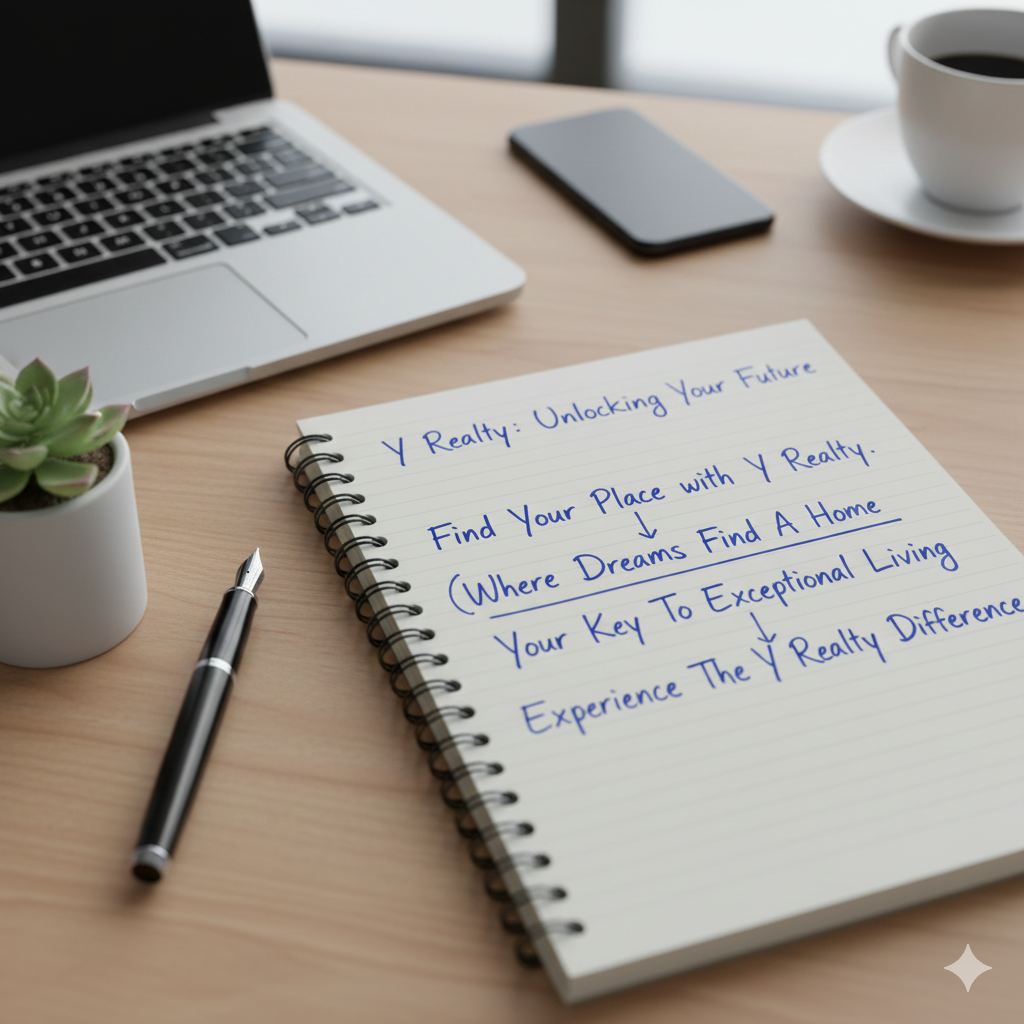 Y Realty: Unlocking Your Future
Find Your Place with Y Realty.
↓
(Where Dreams Find A Home
Your Key To Exceptional Living
↓
Experience The Y Realty Difference